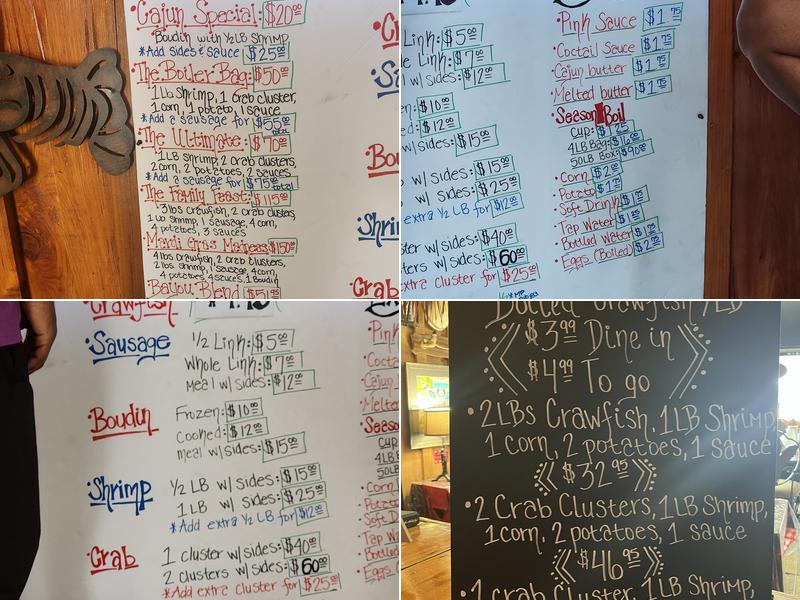 ·Cajun Special: $20.00
Boudin with ½ LB Shrimp
*Add sides & sauce $25.00
·The Boiler Bag: $50.00
1 Lb Shrimp, 1 crab cluster,
1 corn, 1 potato, 1 sauce
*Add a sausage for $55.00
·The Ultimate: $70.00
1 LB shrimp, 2 crab clusters,
2 corn, 2 potatoes, 2 sauces
*Add a sausage for $75.00 total
·The Family Feast: $115.00
3 lbs crawfish, 2 crab clusters
1 Lb shrimp, 1 sausage, 4 corn,
4 potatoes, 3 sauces
Mardi Gras Madness $150
4 lbs crawfish, 2 crab clusters,
2 lbs shrimp, 1 sausage, 4 corn,
4 potatoes, 4 sauces, 1 Boudin
·Bayou Blend
·C
·Sa
Bou
Shri
Crab
Link: $5.00
le Link: $7.00
l w/ sides: $12.00
en: $10.00
ed: $12.00
w/ sides: $15.00
w/ sides: $15.00
w/ sides: $25.00
extra ½ LB for $12.00
ster w/ sides: $40.00
ters w/ sides: $60.00
extra cluster for $25.00
·Pink Sauce $1.75
·Coctail Sauce $1.75
·Cajun butter $1.75
·Melted butter $1.75
·Season Boil
Cup: $1.25
4LB Bag: $16.00
50LB Box: $90.00
·Corn $2
·Potato $1
·Soft Drink $1
·Tap Water $1
·Bottled Water $1
·Eggs (Boiled)
·Crawfish
·Sausage
½ Link: $5.00
Whole Link: $7.00
meal w/ sides: $12.00
·Boudin
Frozen: $10.00
Cooked: $12.00
meal w/ sides: $15.00
·Shrimp
½ LB w/ sides: $15.00
1 LB w/ sides: $25.00
*Add extra ½ LB for $12.00
·Crab
1 cluster w/ sides: $40.00
2 clusters w/ sides: $60.00
*Add extra cluster for $25.00
·Pink
·Cocta
·Cajun
·Melte
·Seaso
Cup
4LB B
50LB
·Corn
·Potato
·Soft D
·Tap Wa
·Bottled
·Eggs (
Boiled Crawfish /LB
$3.99 Dine in
$4.99 To go
·2 LBs Crawfish, 1 LB Shrimp,
1 corn, 2 potatoes, 1 sauce
$32.95
·2 Crab Clusters, 1 LB Shrimp,
1 corn, 2 potatoes, 1 sauce
$46.95
·1 crab cluster, 1 LB Shrimp,